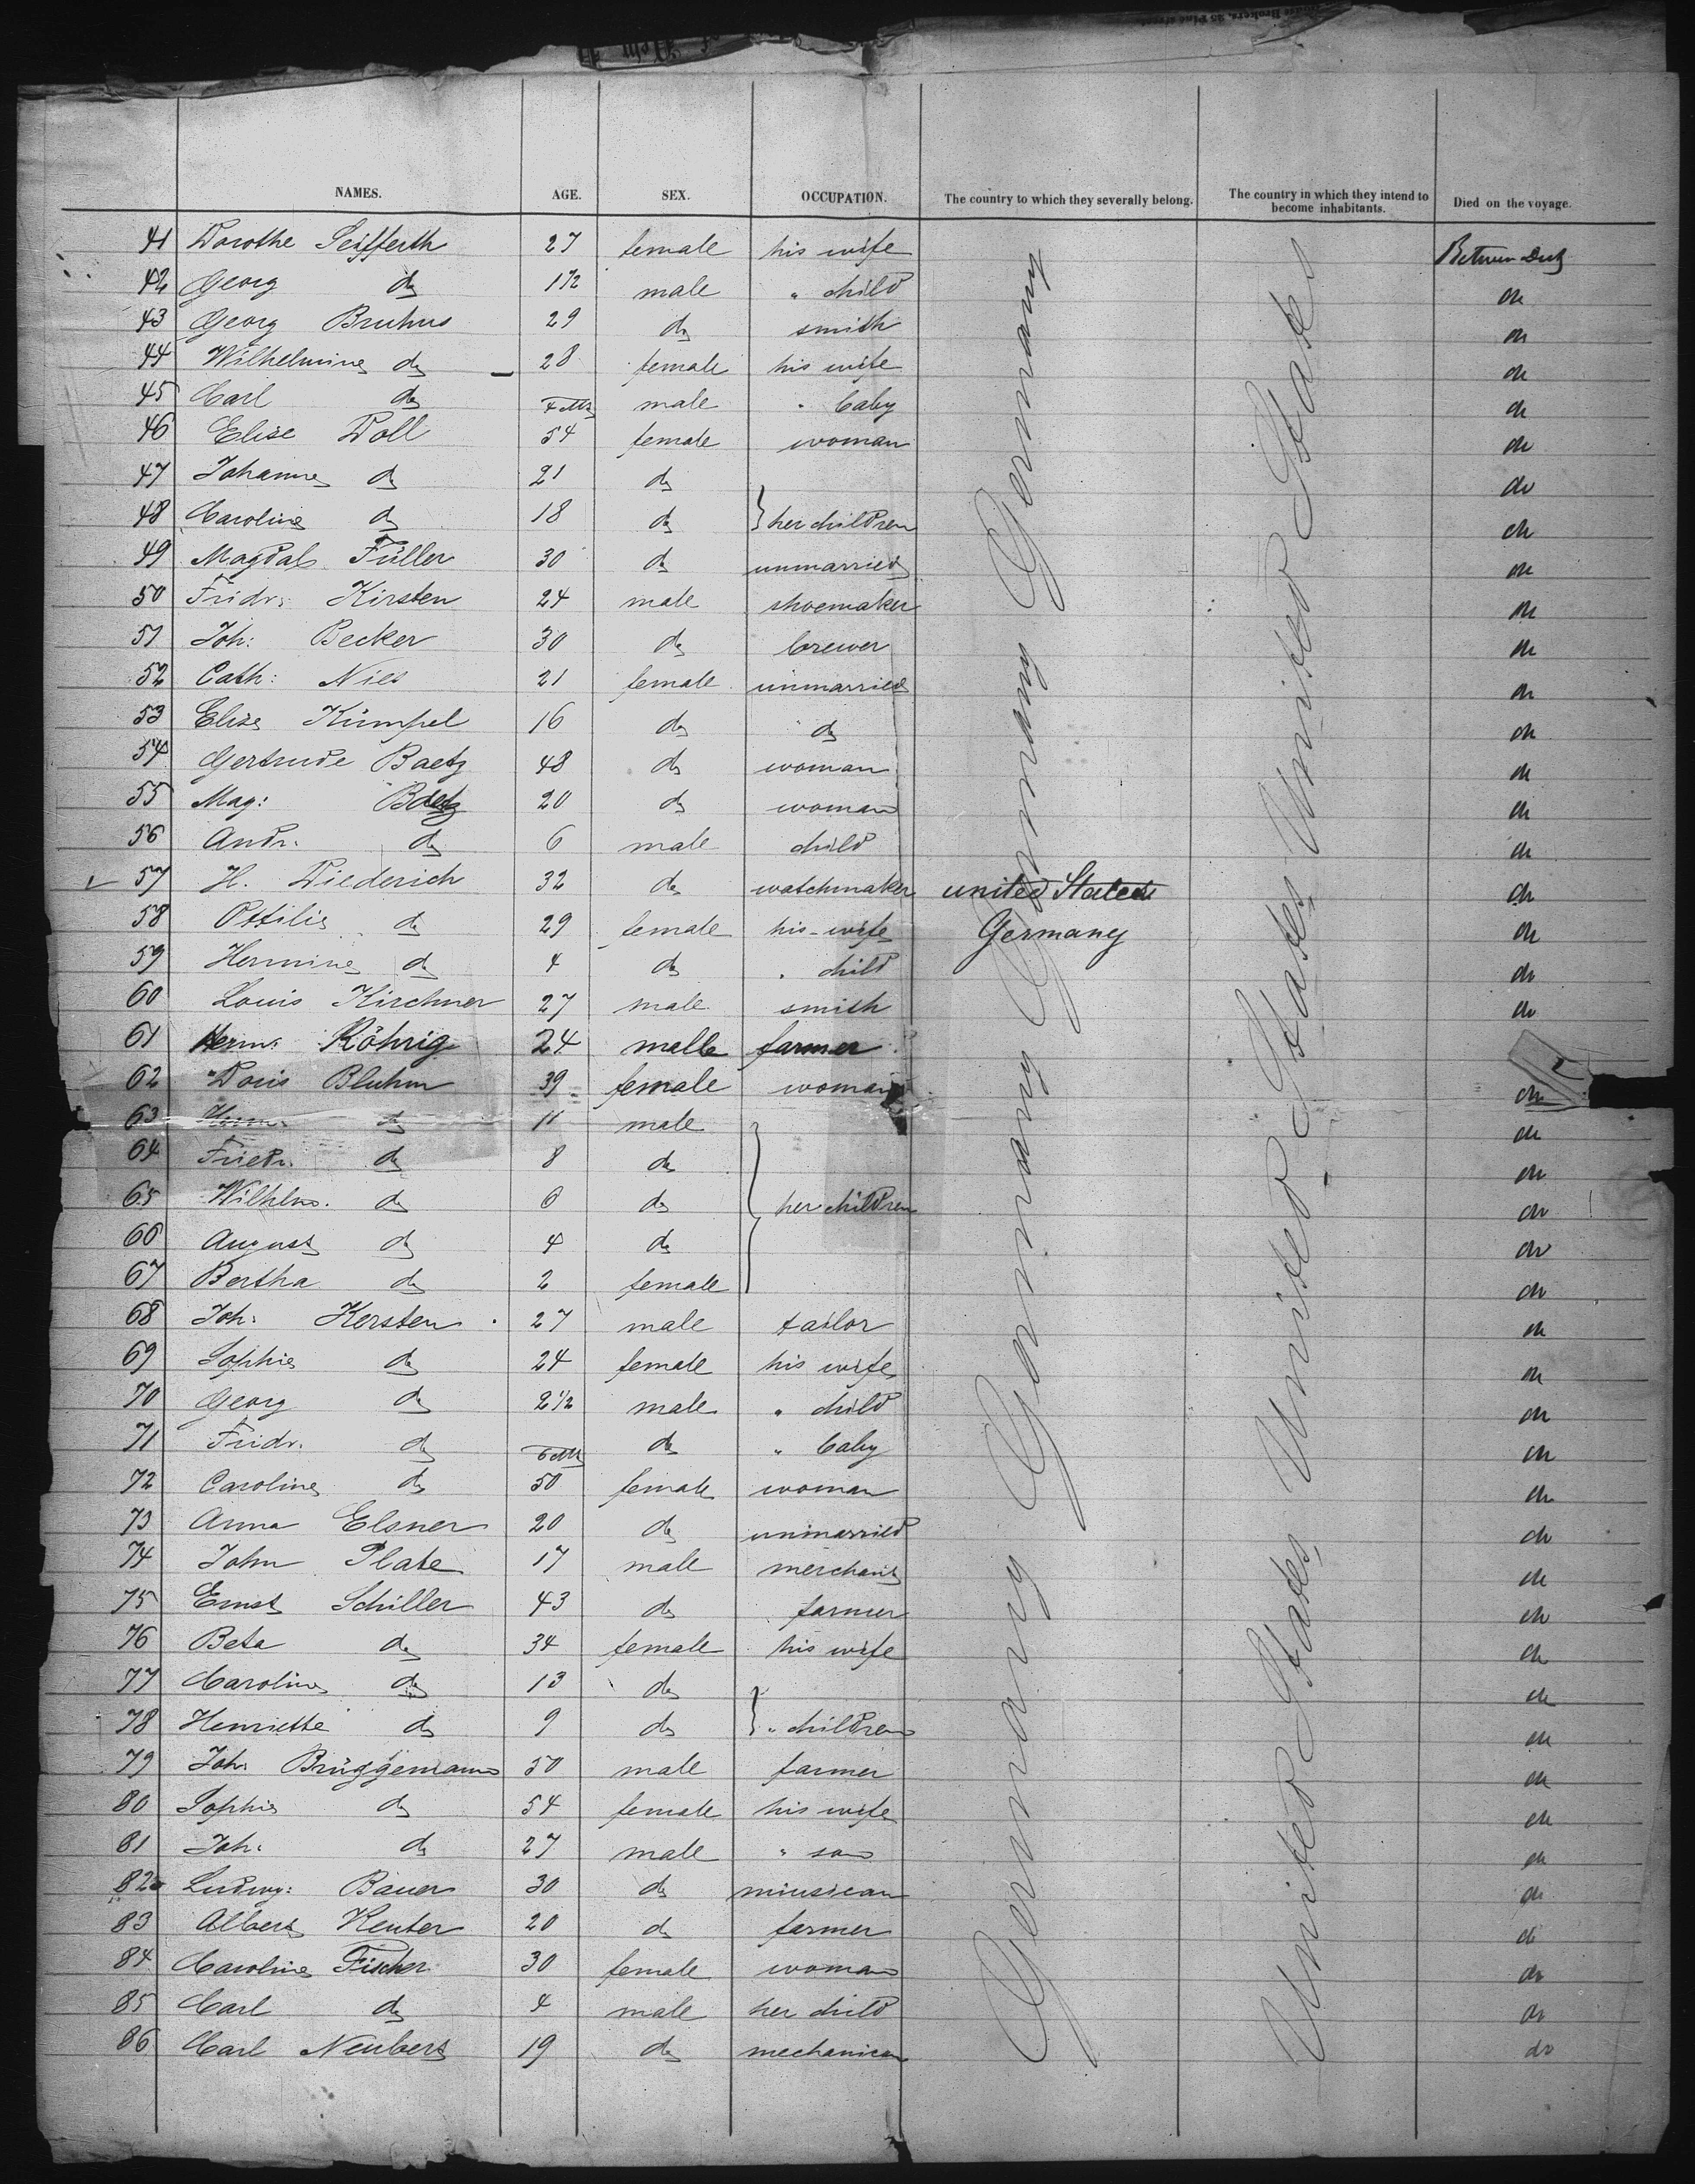 NAMES. AGE. SEX. OCCUPATION. The country to which they severally belong. The country in which they intend to become inhabitants. Died on the voyage.
41 Dorothe Seifferth 27 female his wife
42 Georg do 1 1/2 male " child do
43 Georg Bruhns 29 do smith do
44 Wilhelmine do 28 female his wife do
45 Carl do male " baby do
46 Elise Doll 54 female woman do
47 Johanne do 21 do do
48 Caroline do 18 do } her children do
49 Magdal. Füller 30 do unmarried do
50 Fridr: Kirsten 24 male shoemaker do
51 Joh: Becker 30 do brewer do
52 Cath: Nies 21 female unmarried do
53 Elise Kümpel 16 do do do
54 Gertrude Baetz 48 do woman do
55 Mag: Baetz 20 do woman do
56 Andr. do 6 male child do
57 H. Diederich 32 do watchmaker united States do
58 Ottilie do 29 female his wife Germany do
59 Hermine do 4 do " child do
60 Louis Kirchner 27 male smith do
61 Herm: Röhrig 24 malle farmer
62 Doris Bluhm 39 female woman do
63 Herm. do 11 male do
64 Friedr. do 8 do do
65 Wilhlm. do 6 do } her children do
66 August do 4 do do
67 Bertha do 2 female do
68 Joh: Kersten 27 male tailor do
69 Sophie do 24 female his wife do
70 Georg do 2 1/2 male " child do
71 Fridr. do do " baby do
72 Caroline do 50 female woman do
73 Anna Elsner 20 do unmarried do
74 John Plate 17 male merchant do
75 Ernst Schiller 43 do farmer do
76 Beta do 34 female his wife do
77 Caroline do 13 do do
78 Henriette do 9 do } " children do
79 Joh: Brüggemann 50 male farmer do
80 Sophie do 54 female his wife do
81 Joh: do 27 male " son do
82 Ludwg: Bauer 30 do miusican do
83 Albert Keuter 20 do farmer do
84 Caroline Fischer 30 female woman do
85 Carl do 4 male her child do
86 Carl Neubert 19 do mechanican do
Germany Germany Germany Germany Germany
United States United States United States